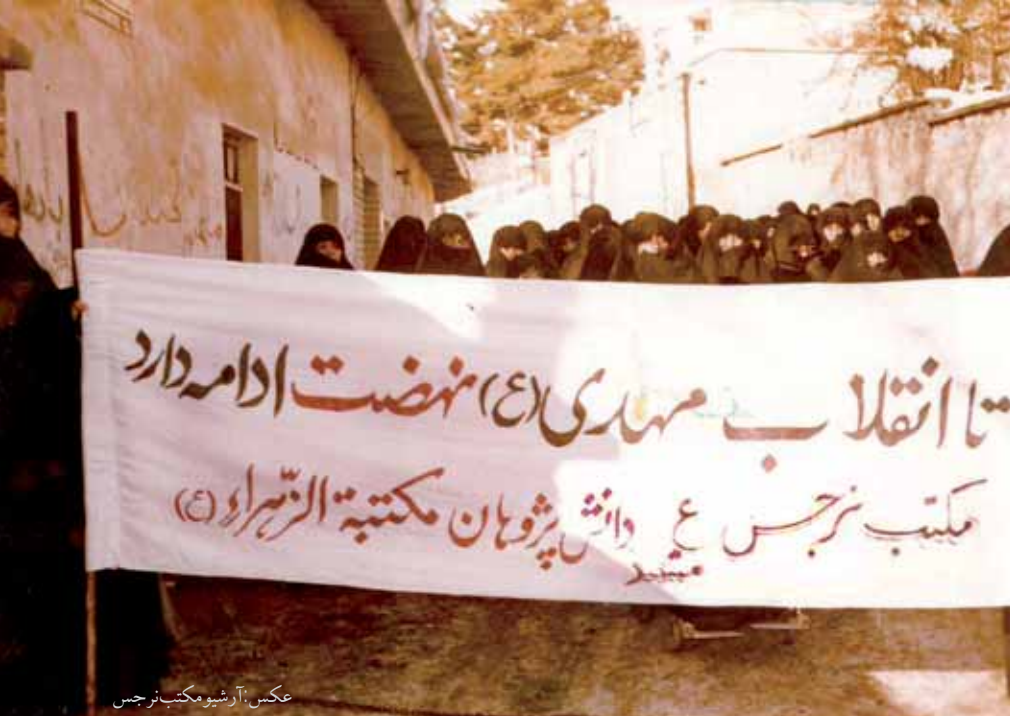 تا انقلاب مهدی (ع) نهضت ادامه دارد
مکتب نرجس ع دانش پژوهان مکتبة الزّهراء (ع)
عکس: آرشیو مکتب نرجس